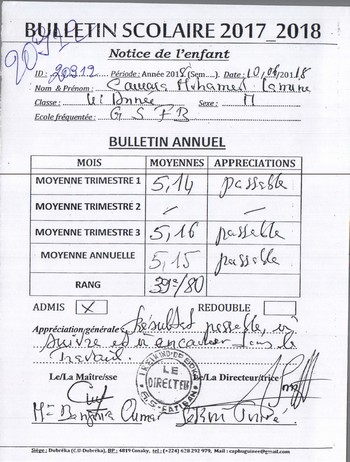 BULLETIN SCOLAIRE 2017_2018
20912
Notice de l'enfant
ID : 20912 Période : Année 2018 (Sem....). Date : 10/06/2018
Nom & Prénom : Camara Mohamed Lamine
Classe : Année Sexe : M
Ecole fréquentée : G S F B
BULLETIN ANNUEL
MOIS MOYENNES APPRECIATIONS
MOYENNE TRIMESTRE 1 5,14 passable
MOYENNE TRIMESTRE 2 — —
MOYENNE TRIMESTRE 3 5,16 passable
MOYENNE ANNUELLE 5,15 passable
RANG 39e/80
ADMIS X REDOUBLE
Appréciation/générale : Résultat passable, à
suivre et encadrer dans le
travail.
Le/La Maître/sse Le/La Directeur/trice
LE
DIRECTEUR
Oumar
Siège : Dubréka (C.U Dubréka), BP : 4819 Conakry, tel : (+224) 628 292 979, Mail : caphuguinee@gmail.com